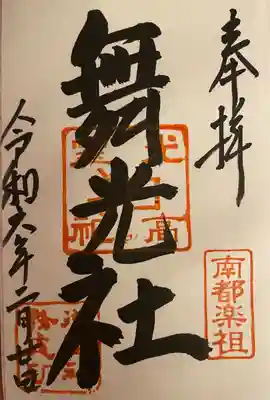 奉拝
南都楽祖
舞光社
令和六年二月廿四日